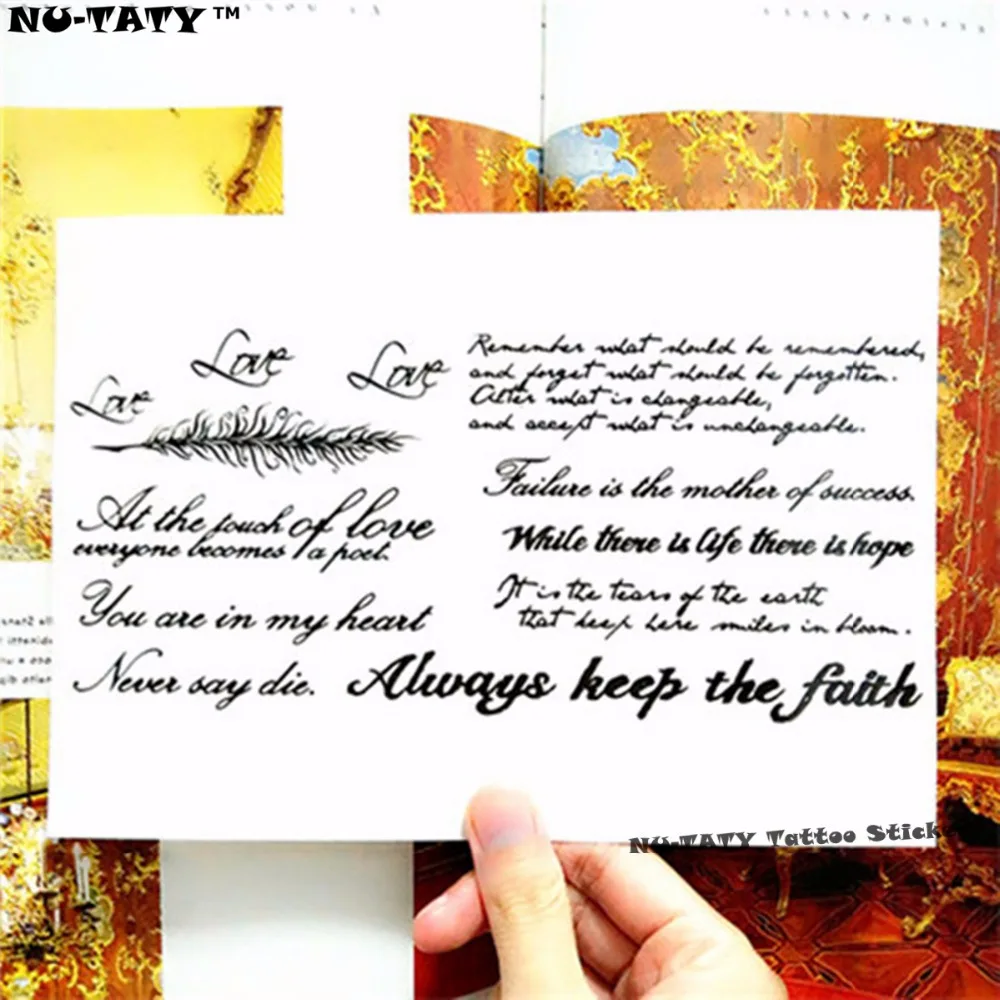 NU-TATY™
Love
Love
Love
At the touch of love
everyone becomes a poet.
You are in my heart
Never say die.
Remember what should be remembered,
and forget what should be forgotten.
Alter what is changeable,
and accept what is unchangeable.
Failure is the mother of success.
While there is life there is hope
It is the tears of the earth
that keep here smiles in bloom.
Always keep the faith
NU-TATY Tattoo Stick